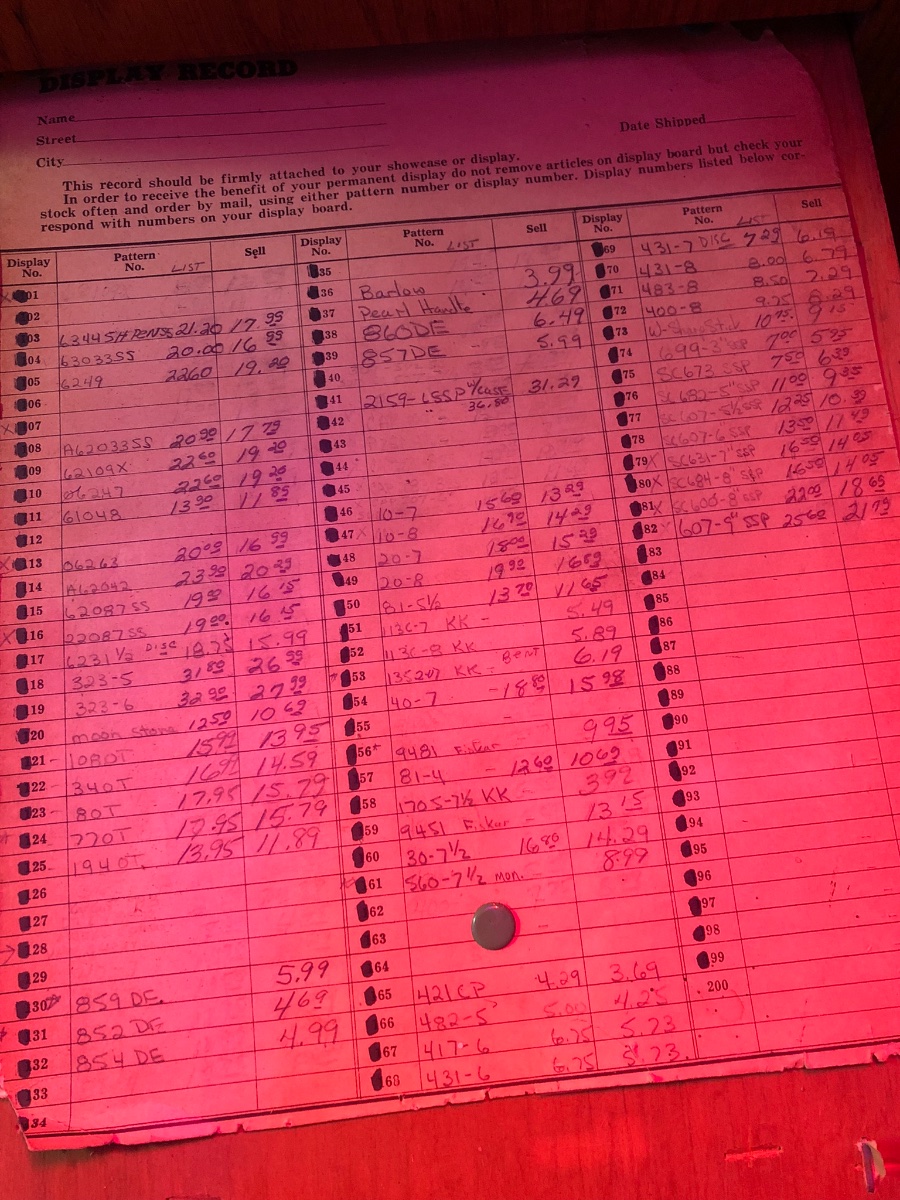 DISPLAY RECORD
Name
Street
City
Date Shipped
This record should be firmly attached to your showcase or display.
In order to receive the benefit of your permanent display do not remove articles on display board but check your
stock often and order by mail, using either pattern number or display number. Display numbers listed below cor-
respond with numbers on your display board.
Display No. Pattern No. LIST Sell
01
02
03 6344 SH PEN SS 21.20 17.95
04 6303355 20.00 16.99
05 6249 2260 19.20
06
x 07
08 A62033SS 20.90 17.79
09 62109X 22.60 19.20
10 06247 22.60 19.20
11 61048 13.90 11.85
12
x 13 06263 20.00 16.99
14 A62042 23.90 20.29
15 62087SS 19.00 16.15
x 16 22087SS 19.00 16.15
17 6231 1/2 DISC 18.75 15.99
18 323-5 31.80 26.99
19 323-6 32.90 27.99
20 moon stone 12.50 10.62
21 1080T 15.99 13.95
22 340T 14.59
23 80T 17.95 15.79
24 770T 17.95 15.79
25 1940T 13.95 11.89
26
27
28
29
30 859 DE. 5.99
31 852 DE 4.69
32 854 DE 4.99
33
34
Display No. Pattern No. LIST Sell
35
36 Barlow 3.99
37 Pearl Handle 4.69
38 860DE 6.49
39 857DE 5.99
40
41 2159-LSSP w/case 36.80 31.29
42
43
44
45
46 10-7 15.60 13.29
47 x 10-8 16.70 14.29
48 20-7 18.00 15.29
49 20-8 19.90 16.89
50 81-5½ 13.70 11.65
51 1136-7 KK - 5.49
52 1136-8 KK 5.89
53 1352-7 KK - Bent 6.19
54 40-7 - 18.80 15.98
55
56* 9481 Fiskar 9.95
57 81-4 - 12.60 10.69
58 1705-7½ KK 3.99
59 9451 Fiskar - 13.15
60 30-7½ 16.80 14.29
61 560-7½ mon. 8.99
62
63
64
65 421 CP 4.29 3.69
66 482-5 5.00 4.25
67 417-6 6.75 5.73
68 431-6 6.75 5.73
Display No. Pattern No. LIST Sell
69 431-7 DISC 7.29 6.19
70 431-8 8.00 6.79
71 483-8 8.50 7.29
72 400-8 9.75 8.29
73 10.75 9.15
74 699-3" SSP 7.00 5.95
75 SC673 SSP 7.50 6.39
76 SC682-5" SSP 11.00 9.35
77 SC607-5½ SSP 12.25 10.39
78 SC607-6 SSP 13.50 11.49
79 x SC631-7" SSP 16.50 14.05
80 x SC684-8" SSP 16.50 14.05
81 x SC600-8" SSP 22.00 18.69
82 x 607-9" SSP 25.60 21.79
83
84
85
86
87
88
89
90
91
92
93
94
95
96
97
98
99
200